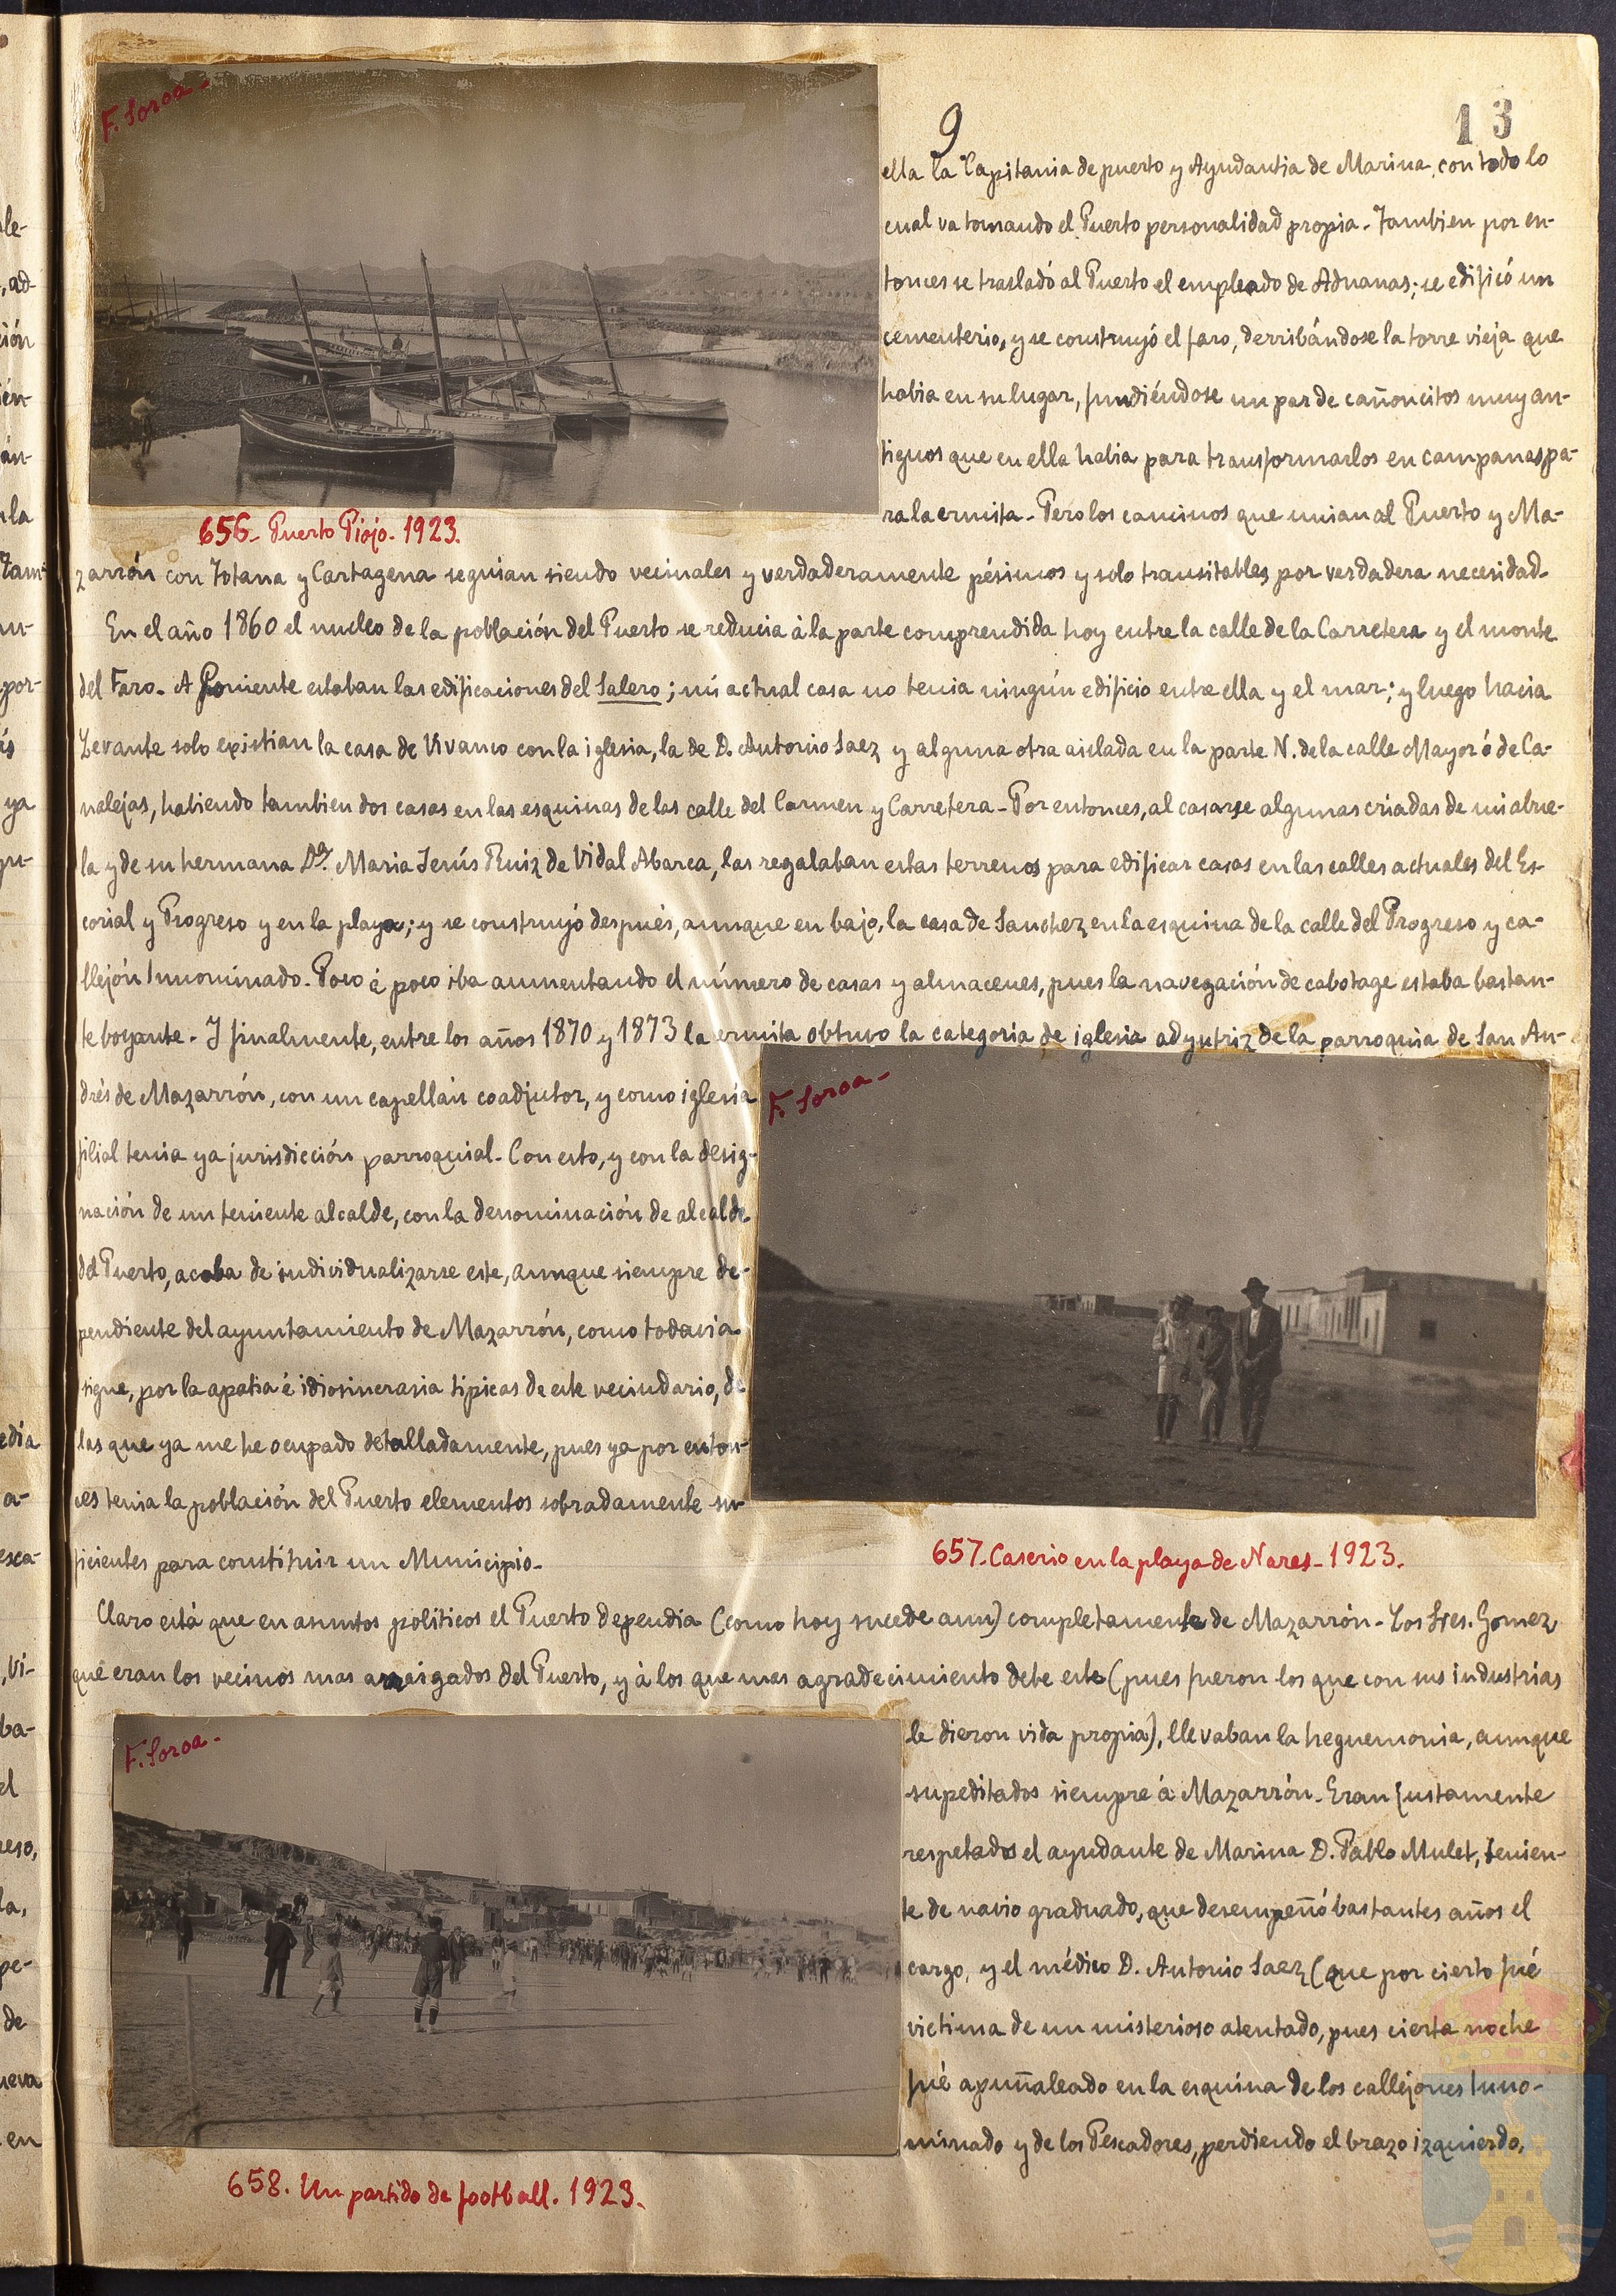 9
13
F. Soroa.-
ella la Capitania de puerto y Ayudantia de Marina, con todo lo
cual va tomando el Puerto personalidad propia.- Tambien por en-
tonces se trasladó al Puerto el empleado de Aduanas; se edificó un
cementerio, y se construyó el faro, derribándose la torre vieja que
habia en su lugar, fundiéndose un par de cañoncitos muy an-
tiguos que en ella habia para transformarlos en campanas pa-
ra la ermita.- Pero los caminos que unian al Puerto y Ma-
656.- Puerto Piojo. 1923.
zarrón con Totana y Cartagena seguian siendo vecinales y verdaderamente pésimos y solo transitables por verdadera necesidad.
En el año 1860 el nucleo de la población del Puerto se reducia à la parte comprendida hoy entre la calle de la Carretera y el monte
del Faro.- A Poniente estaban las edificaciones del Salero; mi actual casa no tenia ningún edificio entre ella y el mar; y luego hacia
Levante solo existian la casa de Vivanco con la iglesia, la de D. Antonio Saez y alguna otra aislada en la parte N. de la calle Mayor ó de Ca-
nalejas, habiendo tambien dos casas en las esquinas de las calle del Carmen y Carretera.- Por entonces, al casarse algunas criadas de mi abue-
la y de su hermana Dª. Maria Jesús Ruiz de Vidal Abarca, las regalaban estas terrenos para edificar casas en las calles actuales del Es-
corial y Progreso y en la playa; y se construyó después, aunque en bajo, la casa de Sanchez en la esquina de la calle del Progreso y ca-
llejón Innominado. Poco á poco iba aumentando el número de casas y almacenes, pues la navegación de cabotage estaba bastan-
te boyante.- Y finalmente, entre los años 1870 y 1873 la ermita obtuvo la categoria de iglesia adyutriz de la parroquia de San An-
drés de Mazarrón, con un capellán coadjutor, y como iglesia
filial tenia ya jurisdicción parroquial.- Con esto, y con la desig-
nación de un teniente alcalde, con la denominación de alcalde
del Puerto, acaba de individualizarse este, aunque siempre de-
pendiente del ayuntamiento de Mazarrón, como todavia
sigue, por la apatia é idiosincrasia tipicas de este vecindario, de
las que ya me he ocupado detalladamente, pues ya por enton-
ces tenia la población del Puerto elementos sobradamente su-
ficientes para constituir un Municipio.-
F. Soroa.-
657. Caserio en la playa de Nares.- 1923.
Claro está que en asuntos politicos el Puerto dependia (como hoy sucede aun) completamente de Mazarrón.- Los Sres. Gomez
que eran los vecinos mas arraigados del Puerto, y à los que mas agradecimiento debe este (pues fueron los que con sus industrias
F. Soroa.-
le dieron vida propia), llevaban la heguemonia, aunque
supeditados siempre á Mazarrón.- Eran justamente
respetados el ayudante de Marina D. Pablo Mulet, tenien-
te de navio graduado, que desempeñó bastantes años el
cargo, y el médico D. Antonio Saez (que por cierto fué
victima de un misterioso atentado, pues cierta noche
fué apuñaleado en la esquina de los callejones Inno-
minado y de los Pescadores, perdiendo el brazo izquierdo,
658. Un partido de football. 1923.